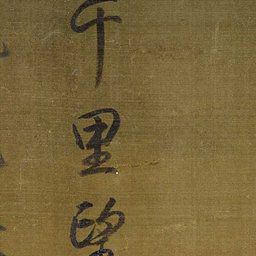 千里望